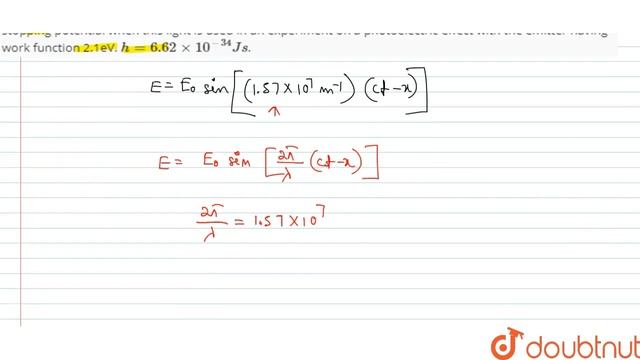 stopping potential when this light is used in an experiment on a photoelectric effect with the emitter having
work function 2.1eV. h = 6.62 × 10⁻³⁴ Js.
E = E₀ sin [(1.57 × 10⁷ m⁻¹) (ct − x)]
E = E₀ sin [2π/λ (ct − x)]
2π/λ = 1.57 × 10⁷
doubtnut